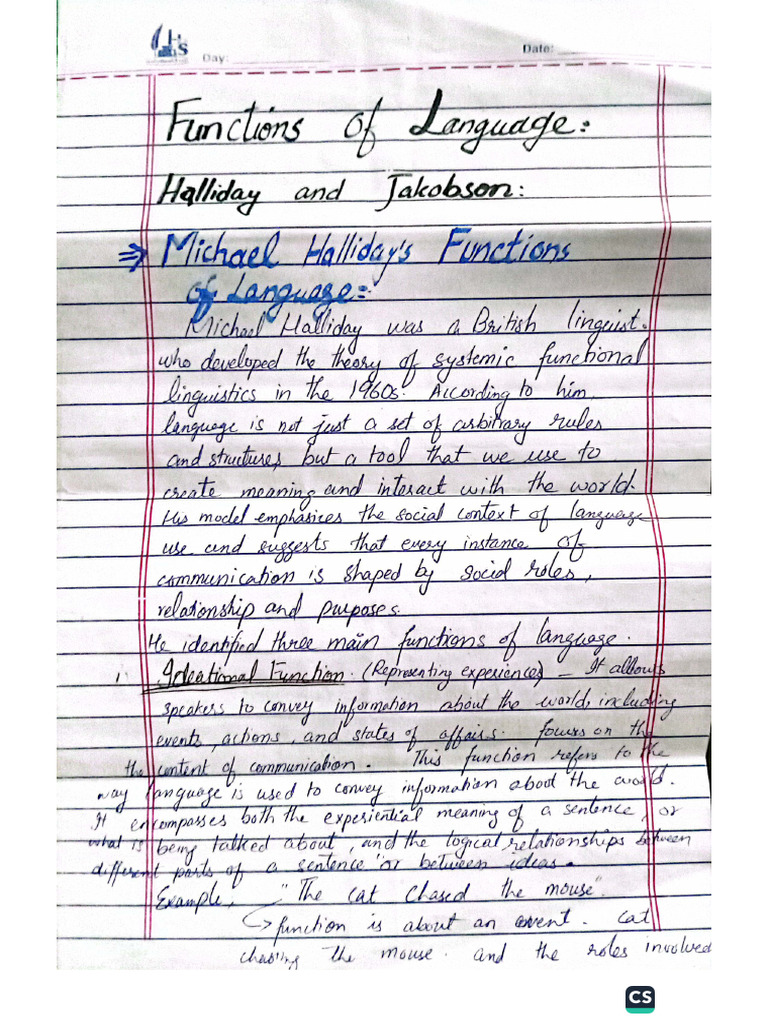 Day:
Date:
Functions of Language:
Halliday and Jakobson:
⇒ Michael Halliday's Functions
of Language:-
Michael Halliday was a British linguist.
who developed the theory of systemic functional
linguistics in the 1960s. According to him,
language is not just a set of arbitrary rules
and structures, but a tool that we use to
create meaning and interact with the world.
His model emphasizes the social context of language
use and suggests that every instance of
communication is shaped by social roles,
relationship and purposes.
He identified three main functions of language.
1. Ideational Function. (Representing experiences) - It allows
speakers to convey information about the world, including
events, actions, and states of affairs. focuses on the
the content of communication. This function refers to the
way language is used to convey information about the world.
It encompasses both the experiential meaning of a sentence, or
what is being talked about, and the logical relationships between
different parts of a sentence or between ideas.
Example, "The cat chased the mouse".
↳ function is about an event. Cat
chasing the mouse. and the roles involved
CS